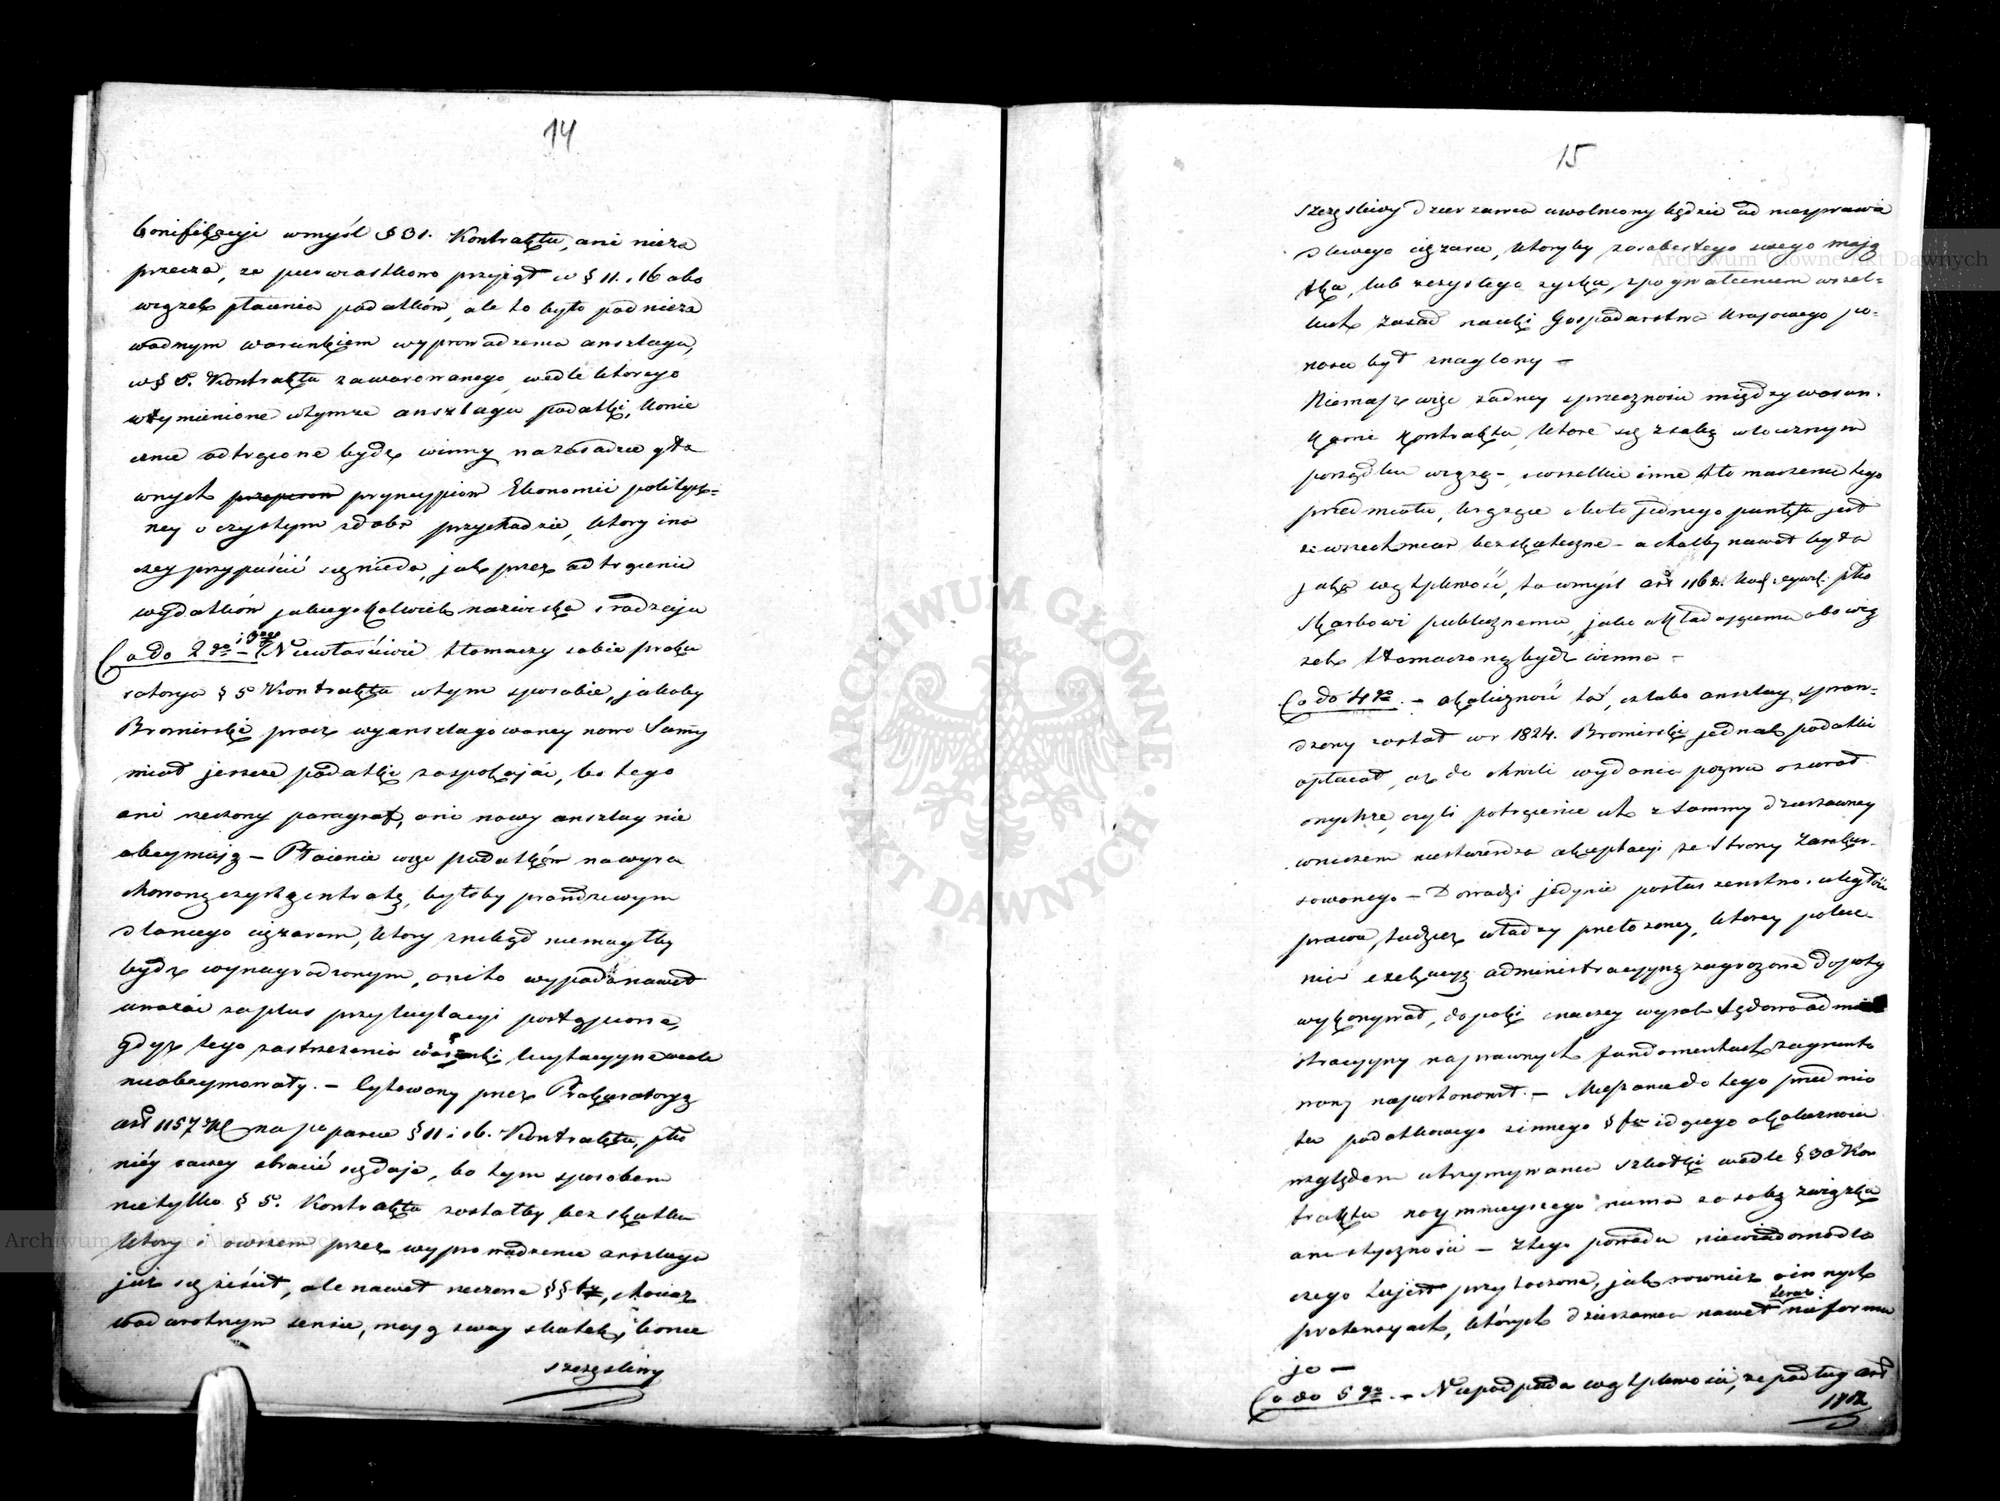 14
bonifikacyi wmyśl § 31. Kontraktu, ani nieza
przecza, że pierwiastkowo przyjął w § 11. i 16 obo
wiązek płacenia podatków, ale to było pod nieza
wodnym warunkiem wyprowadzenia anszlagu,
w § 5. Kontraktu zawarowanego, wedle którego
wymienione wtymże anszlagu podatki, konie
cznie odtrącone bydź winny na zasadzie głó
wnych pryncypiów Ekonomii politycz=
ney o czystym z dóbr przychodzie, który ina
czey przypuścić się nieda, jak przez odtrącenie
wydatków jakiegokolwiek nazwiska i rodzaju
Co do 2go i 3go Niewłaściwie tłomaczy sobie proku
ratorya § 5 Kontraktu wtym sposobie, jakoby
Bromirski prócz wyanszlagowaney nowo Summy
miał jeszcze podatki zaspokajać, bo tego
ani rzeczony paragraf, ani nowy anszlag nie
obeymują – Płacenie więc podatków na wyra
chowaną czystą intratę, byłoby prawdziwym
dla niego ciężarem, który znikąd niemógłby
bydź wynagrodzonym, ani to wypada nawet
uważać za plus przy licytacyi postąpione,
gdyż tego zastrzeżenia warunki licytacyjne wcale
nieobeymowały. – Cytowany przez Prokuratoryą
art 1157 KC na poparcie § 11 i 16. Kontraktu, prto
niéy samey obrócić się daje, bo tym sposobem
nietylko § 5. Kontraktu zostałby bez skutku
który i owszem przez wyprowadzenie anszlagu
już się ziścił, ale nawet rzeczone §§ by, chociaż
w odwrotnym sensie, mają swóy skutek, i konie
szczęśliwy
15
szczęśliwy dzierzawca uwolniony będzie od niesprawie
dliwego ciężaru, któryby z osobistego swego mają
tku, lub czystego zysku, z pogwałceniem wszel=
kich zasad nauki Gospodarstwa Krajowego po=
nosić był znaglony –
Niemasz więc żadney sprzeczności między warun=
kami kontraktu, które się z sobą w łącznym
porządku wiążą –, i wszelkie inne tłomaczenie tego
przedmiotu, krążące około jednego punktu jest
ze wszech miar bezskuteczne – a choćby nawet była
jaka wątpliwość, ta wmyśl art 1162. Kod: cywil: prto
Skarbowi publicznemu, jako układającemu obowią
zek tłomaczoną bydź winna –
Co do 4go. – okoliczność ta, iż lubo anszlag spraw=
dzony został w r 1824. Bromirski jednak podatki
opłacał, aż do chwili wydania pozwu o zwrot
onychże, czyli potrącenie ich z summy dzierżawney
wniczem niestwierdza akceptacyi ze Strony Zaskar=
żowanego – Dowodzi jedynie posłuszeństwo i uległość
prawu, tudzież władzy przełożoney, którey polece
nia exekucyą administracyyną zagrożone dopóty
wykonywał, dopóki inaczey wyrok Sądowo admini
stracyyny na prawnych fundamentach zagrunto
wany niepostanowił. – Mieszanie do tego przedmio
tu podatkowego z innego § fu idącego okoliczności
względem utrzymywania szkółki wedle § 30 Kon
traktu naymnieyszego niema za sobą związku
ani styczności – Ztego powodu niewiadomo dla
czego tu jest przytoczone, jak rownież o innych
pretensyach, których dzierżawca nawet teraz nieformu
je –
Co do 5go. – Niepodpada wątpliwości, że podług art
1702